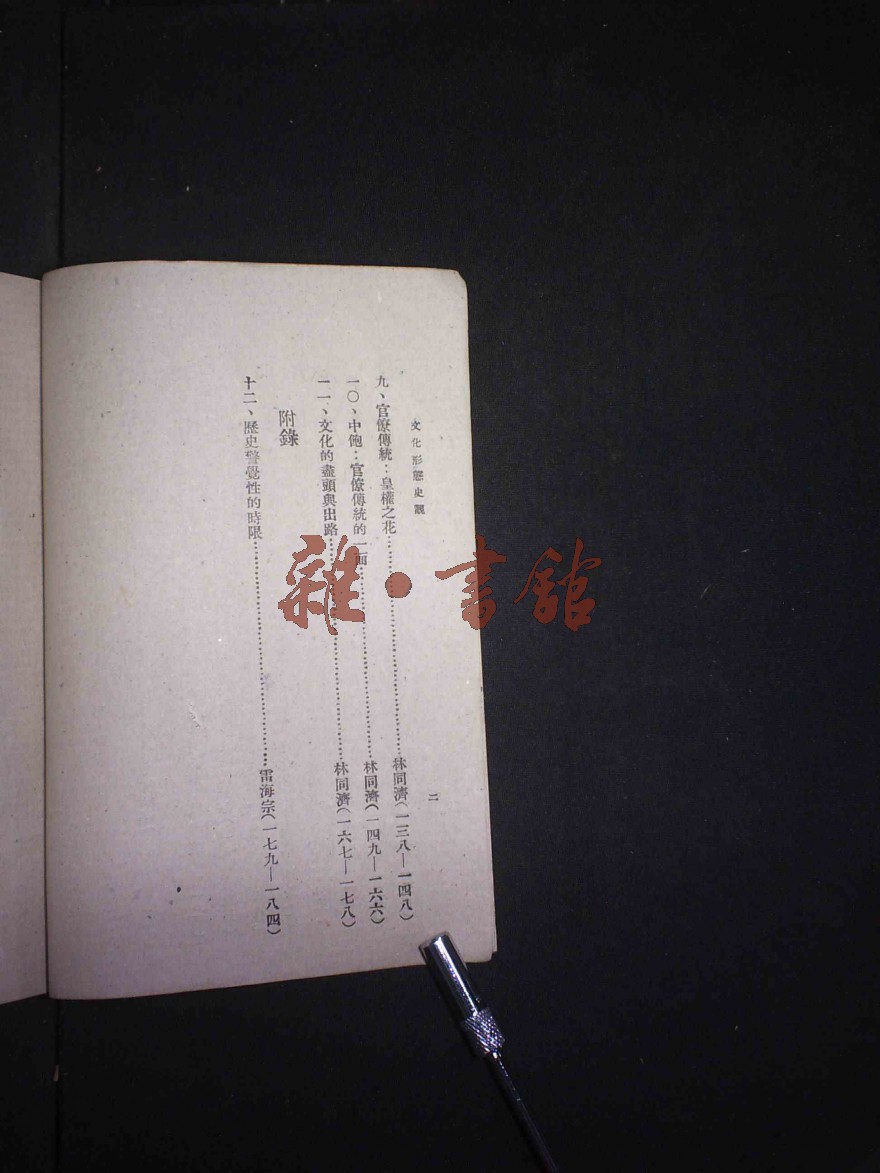 文化形態史觀
二
九、官僚傳統：皇權之花……林同濟(一三八—一四八)
一〇、中飽：官僚傳統的一面……林同濟(一四九—一六六)
一一、文化的盡頭與出路……林同濟(一六七—一七八)
附錄
十二、歷史警覺性的時限……雷海宗(一七九—一八四)
雜·書館